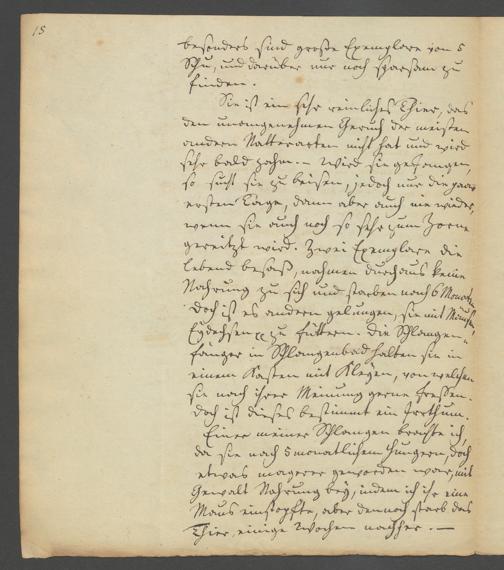 15
besonders sind große Exemplare von 5
Schu, und darüber nur noch sparsam zu
finden.
Sie ist ein sehr reinliches Thier, das
den unangenehmen Geruch der meisten
andern Natterarten nicht hat und wird
sehr bald zahm. - Wird sie gefangen,
so sucht sie zu beisen, jedoch nur die paar
ersten Tage, dann aber auch nie wieder,
wenn sie auch noch so sehr zum Zorne
gereitzt wird. Zwei Exemplare die
lebend besaß, nahmen durchaus keine
Nahrung zu sich und starben nach 6 Monaten
doch ist es andern gelungen, sie mit Mäusen
Eydechsen zu füttern. Die Schlangen-
fänger in Schlangenbad halten sie in
einem Kasten mit Kleyen, von welchen
sie nach ihrer Meinung gerne fressen.
doch ist dieses bestimmt ein Irrthum.
Einer meiner Schlangen brachte ich,
da sie nach 5 monatlichem Hungern, doch
etwas magerer geworden war, mit
Gewalt Nahrung bey, indem ich ihr eine
Maus einstopfte, aber dennoch starb das
Thier, einige Wochen nachher. —